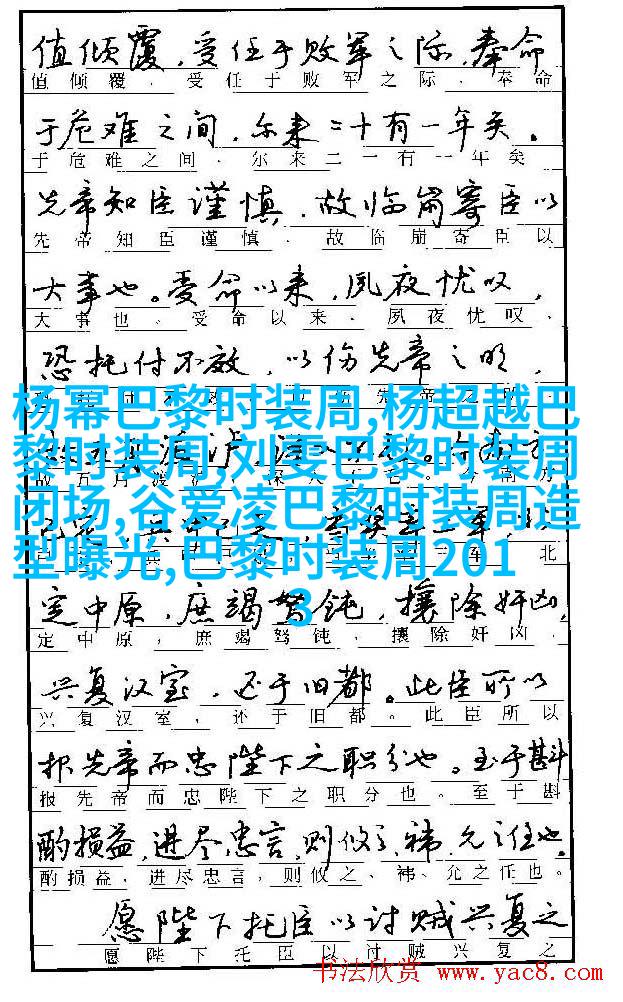 值倾覆，受任于败军之际，奉命
值倾覆，受任于败军之际，奉命
于危难之间，尔来二十有一年矣。
于危难之间，尔来二一有一年矣
先帝知臣谨慎，故临崩寄臣以
先帝知臣谨慎，故临崩寄臣以
大事也。受命以来，夙夜忧叹，
大事也。受命以来，夙夜忧叹，
恐托付不效，以伤先帝之明，
杨幂巴黎时装周,杨超越巴
黎时装周,刘雯巴黎时装周
闭场,谷爱凌巴黎时装周造
型曝光,巴黎时装周201
3
渡泸
北
定中原，庶竭驽钝，攘除奸凶，
定中原，庶竭驽钝，攘除奸凶，
兴复汉室，还于旧都。此臣所以
兴复汉室，还于旧都。此臣所以
报先帝而忠陛下之职分也。至于斟
报先帝而忠陛下之职分也。至于斟
酌损益，进尽忠言，则攸之、祎、允之任也。
酌损益，进尽忠言，则攸之、祎、允之任也。
愿陛下托臣以讨贼兴复之
愿陛下托臣以讨贼兴复之
书法欣赏 www.yac8.com